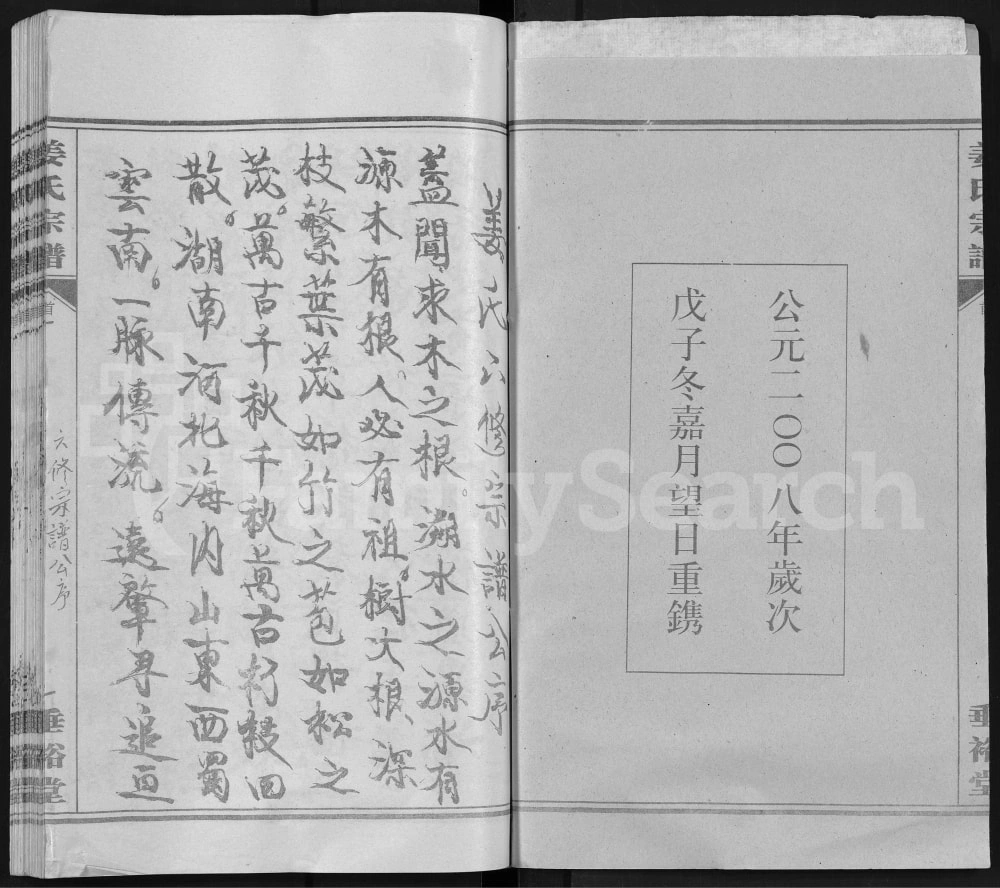 姜氏宗譜
垂裕堂
公元二〇〇八年歲次
戊子冬嘉月望日重鐫
姜氏六修宗譜公序
蓋聞求木之根。溯水之源水有
源木有根。人必有祖。樹大根、深
枝繁葉茂如竹之苞如松之
茂。萬古千秋千秋萬古
散。湖南河北海內山東西蜀
雲南。一脉傳流。遠肇尋追
姜氏宗譜
首
六修宗譜公序
一
垂裕堂
FamilySearch